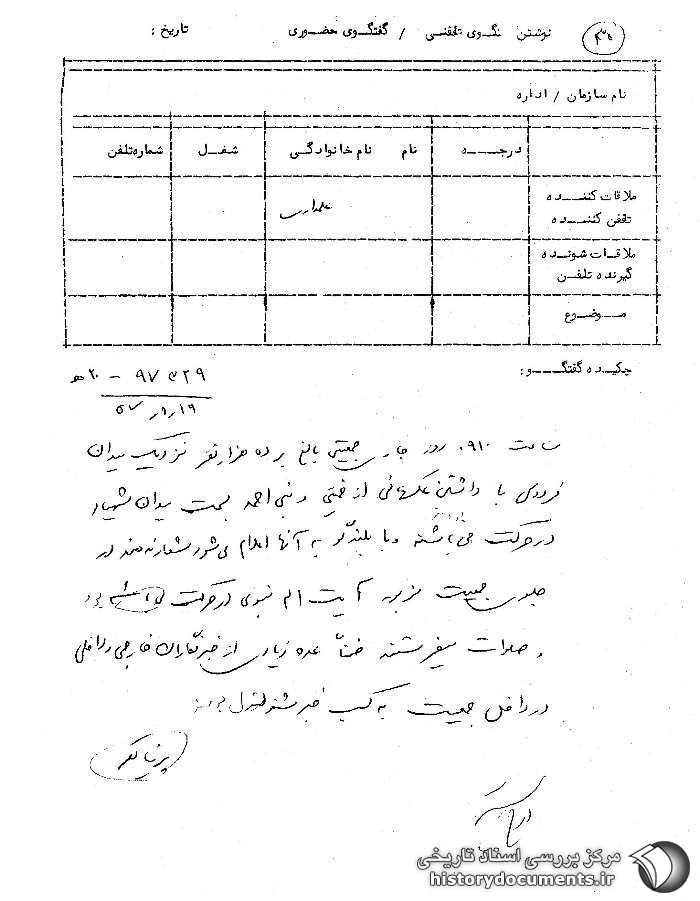 نوشتن نگوی تلفنی / گفتگوی حضوری تاریخ :
نام سازمان / اداره
درجه نام نام خانوادگی شغل شماره تلفن
ملاقات کننده
تلفن کننده
علمداری
ملاقات شونده
گیرنده تلفن
موضوع
چکیده گفتگو:
ساعت ۰۹۱۰ روز جاری جمعیتی بالغ بر ده هزار نفر نزدیک میدان
فردوسی با داشتن عکسهائی از خمینی و بنی احمد بسمت میدان شهیاد
در حرکت می‌باشند و با بلندگو به آنها اعلام می‌شود شعار ندهند در
جلوی جمعیت مزبور آیت اله نبوی در حرکت بود
و صلوات میفرستند ضمناً عده زیادی از خبرنگاران خارجی و داخلی
در داخل جمعیت به کسب خبر مشغول
مرکز بررسی اسناد تاریخی
historydocuments.ir